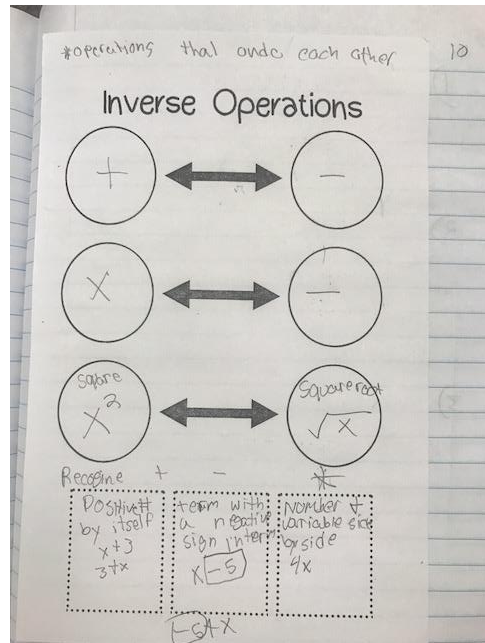 *operations that undo each other
10
Inverse Operations
+ −
x ÷
square Square root
x² √x
Recogine + −
Positive # by itself
x+3
3+x
term with a negative sign in term
x -5
Number & variable side by side
4x
-5+x